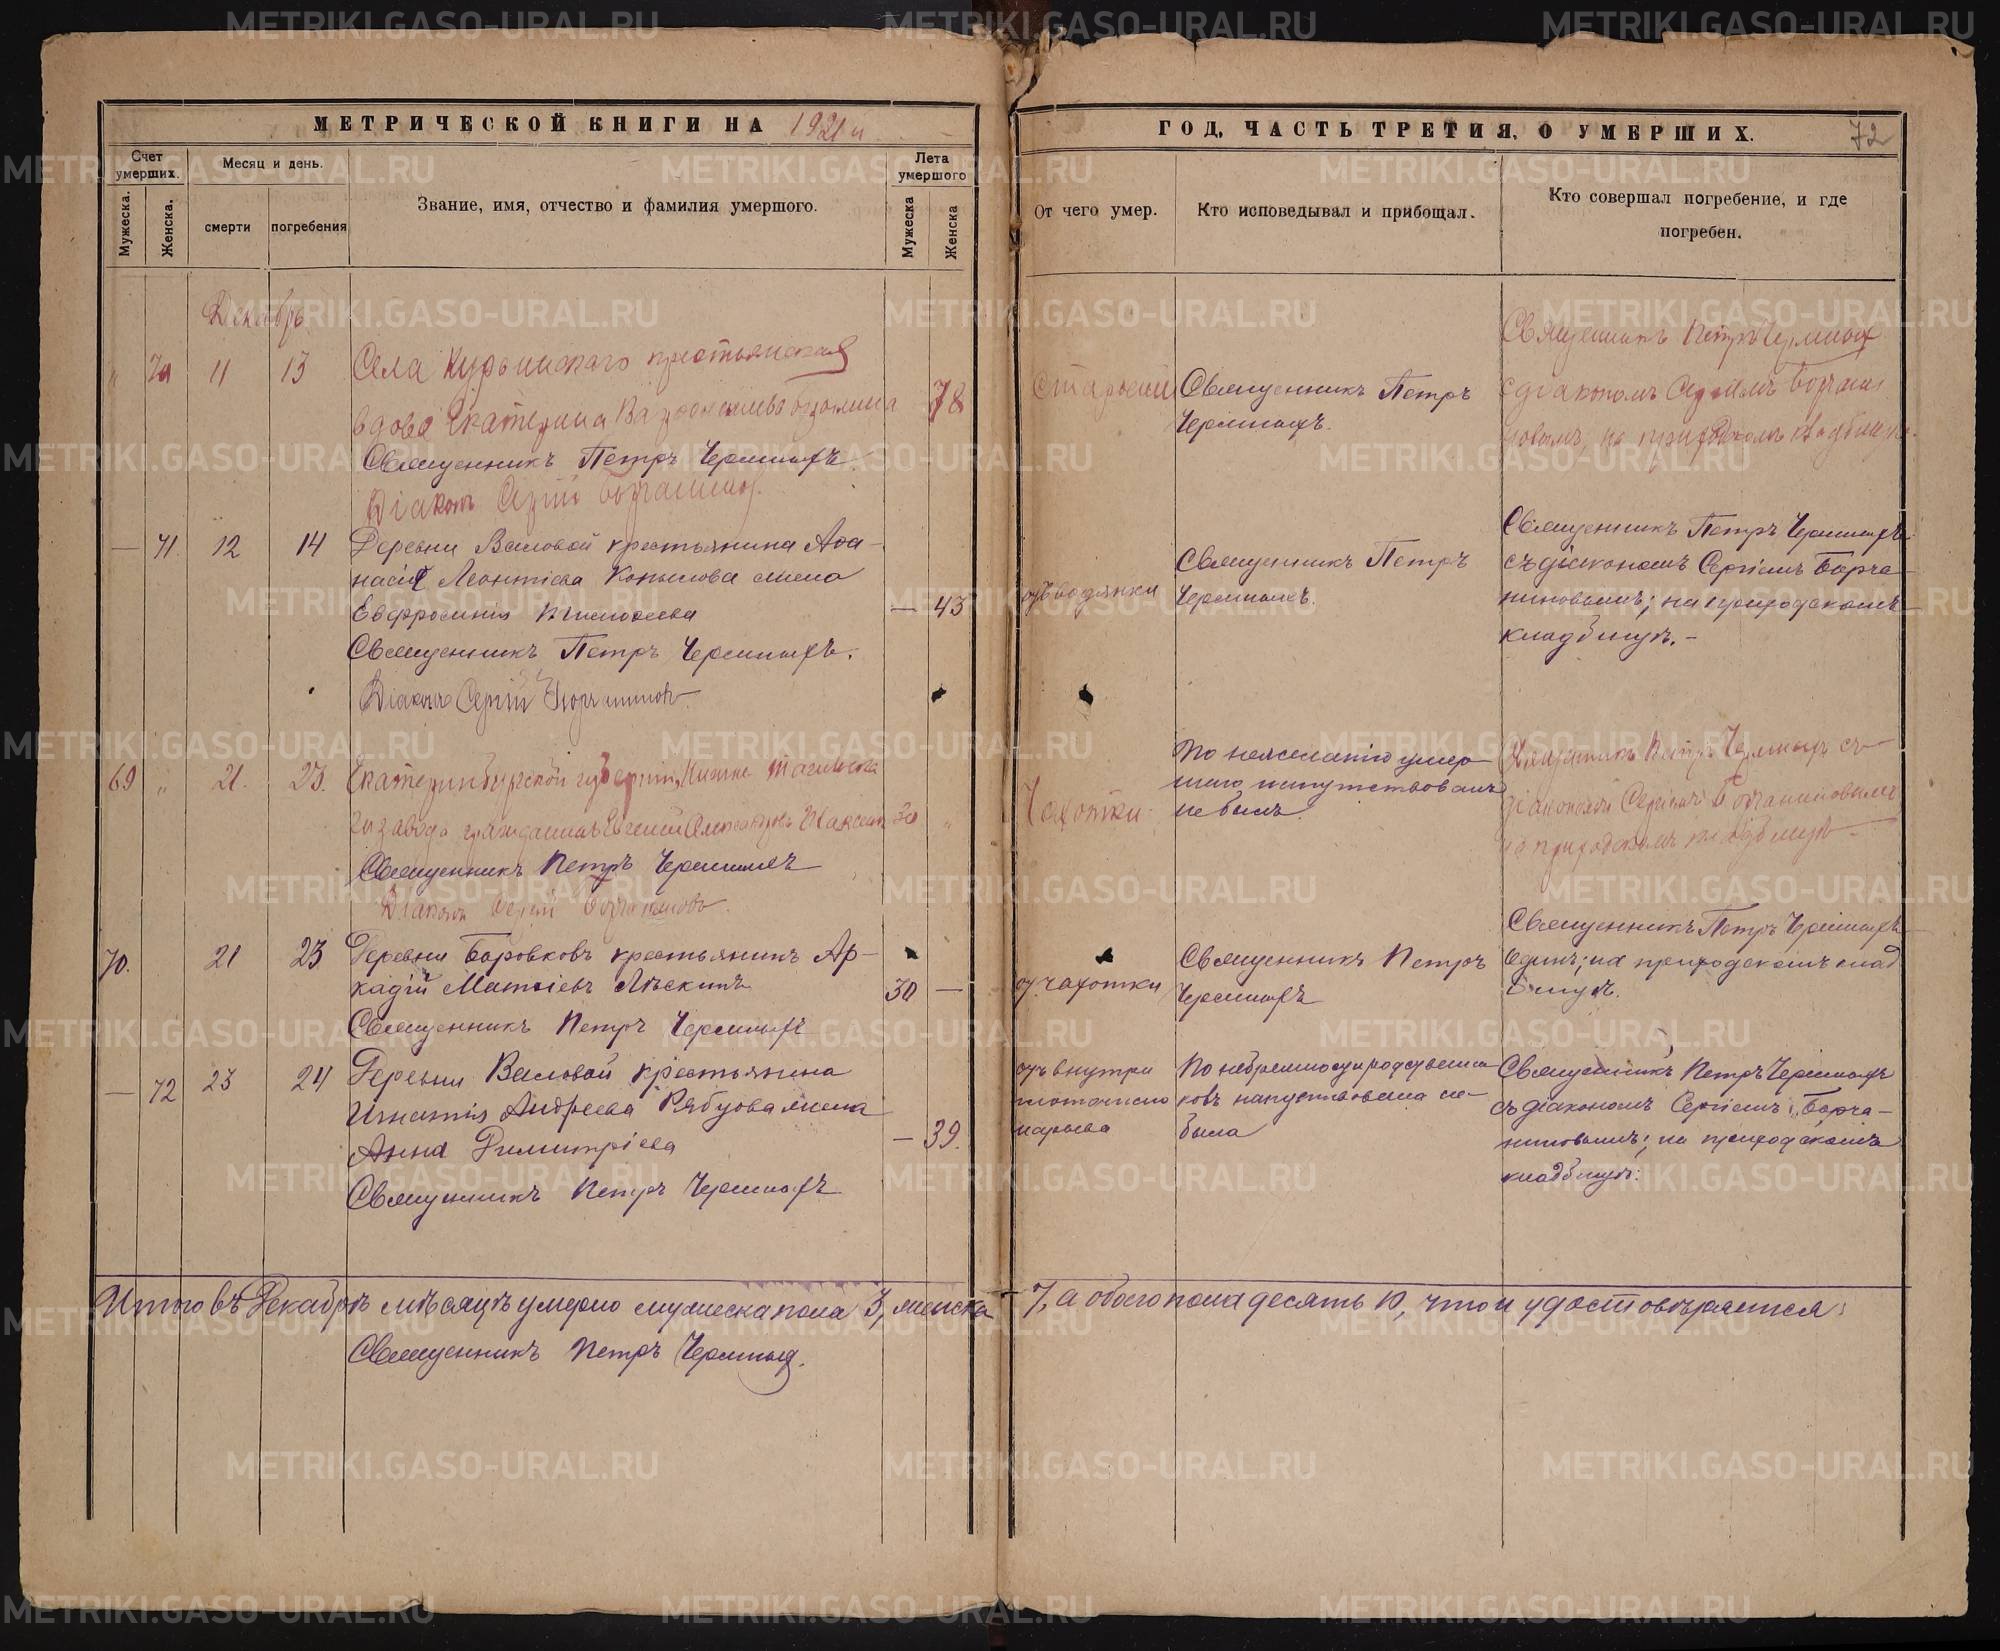 МЕТРИЧЕСКОЙ КНИГИ НА 1921 й
ГОД, ЧАСТЬ ТРЕТИЯ, О УМЕРШИХ.
72
Счет умерших.
Мужеска.
Женска.
Месяц и день.
смерти
погребения
Звание, имя, отчество и фамилия умершого.
Лета умершого
Мужеска
Женска
От чего умер.
Кто исповедывал и прибощал.
Кто совершал погребение, и где
погребен.
Декабрь
70 11 13 Села Курьинскаго крестьянская
вдова Екатерина
78
Священникъ Петръ Черемныхъ.
Діаконъ Сергій Борчаниновъ.
Старости
Священникъ Петръ
Черемныхъ.
Священникъ Петръ Черемных
с діакономъ Сергіемъ Борчани
новымъ, на приходскомъ кладбище.
— 71. 12 14 Деревни Валовой крестьянина Афа-
насія Леонтіева Копылова жена
Евфросинія Тимофеева — 43
Священникъ Петръ Черемныхъ.
Діаконъ Сергій Борчаниновъ.
отъ водянки
Священникъ Петръ
Черемныхъ.
Священникъ Петръ Черемныхъ
съ діакономъ Сергіемъ Борча-
ниновымъ; на приходскомъ
кладбищѣ. –
69 „ 21. 23. Екатеринбургской губерніи, Нижне Тагильска
го завода гражданинъ Евгений Александровъ 30 „
Священникъ Петръ Черемныхъ
Діаконъ Сергій Борчаниновъ.
Чахотки
По нежеланію умер-
шаго напутствованъ
не былъ.
Священникъ Петръ Черемныхъ съ
діакономъ Сергіемъ Борчаниновымъ
на приходскомъ кладбищѣ
70. 21 23 Деревни Боровковъ крестьянинъ Ар-
кадій Матѳіевъ Лѣскинъ 30 —
Священникъ Петръ Черемныхъ
от чахотки
Священникъ Петръ
Черемныхъ
Священникъ Петръ Черемныхъ
Единъ; на приходскомъ клад
бищѣ.
— 72 23 24 Деревни Валовой крестьянина
Игнатія Андреева Рябцова жена
Анна Димитріева — 39.
Священникъ Петръ Черемныхъ
отъ внутри
маточнаго
нарыва
По небрежности родственни-
ковъ напутствована не-
была
Священникъ Петръ Черемныхъ
съ діакономъ Сергіемъ Борча-
ниновымъ; на приходскомъ
кладбищѣ.
Итого въ Декабрѣ мѣсяцѣ умерло мужеска пола 3, женска 7, а обоего пола десять 10, что и удостовѣряется:
Священникъ Петръ Черемныхъ.
METRIKI.GASO-URAL.RU